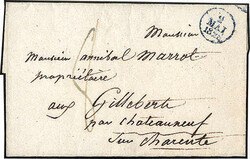 Monsieur
Monsieur annibal Marrot
propriétaire
aux Gilleberts
par chateauneuf
sur charente
MAI